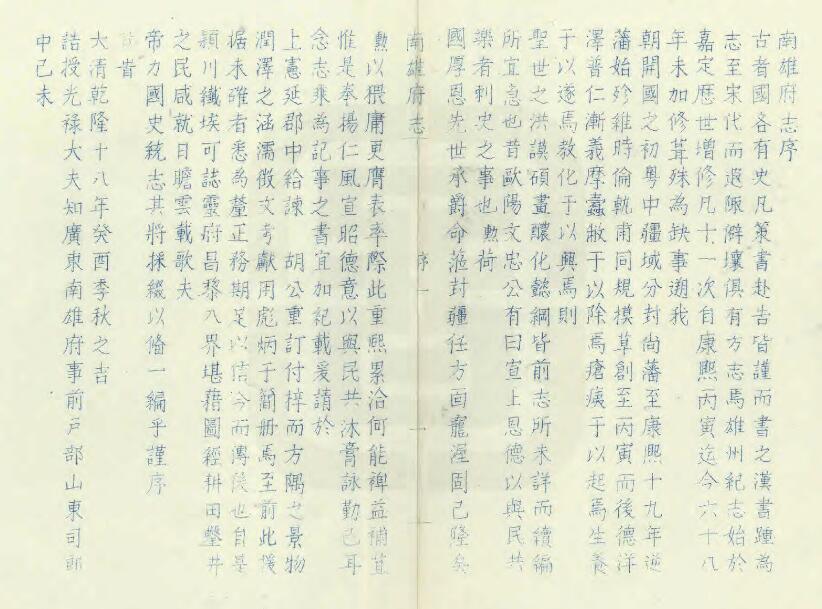 南雄府志序
古者國各有史凡策書赴告皆謹而書之漢書踵為
志至宋代而遐陬僻壤俱有方志焉雄州紀志始於
嘉定歷世增修凡十一次自康熙丙寅迄今六十八
年未加修葺殊為缺事遡我
朝開國之初粵中疆域分封尚藩至康熙十九年逆
藩始殄維時倫軌甫同規模草創至丙寅而後德洋
澤普仁漸義摩蠹敝于以除焉瘡痍于以起焉生養
于以遂焉教化于以興焉則
聖世之洪謨碩畫醲化懿綱皆前志所未詳而續編
所宜急也昔歐陽文忠公有曰宣上恩德以與民共
樂者刺史之事也勲荷
國厚恩先世承爵命蒞封疆任方面寵渥固已隆矣
南雄府志 序 一 一
勲以猥庸更膺表率際此重熙累洽何能裨益補苴
惟是奉揚仁風宣昭德意以與民共沐膏詠勤已耳
念志乘為記事之書宜加紀載爰請於
上憲延郡中給諫 胡公重訂付梓而方隅之景物
潤澤之涵濡徵文考獻用彪炳于簡册焉至前此援
据未確者悉為釐正務期足以信今而傳後也自是
潁川纖埃可誌靈府昌黎入界堪藉圖經耕田鑿井
之民咸就日瞻雲載歌夫
帝力國史統志其將採綴以備一編乎謹序
旹
大清乾隆十八年癸酉季秋之吉
誥授光祿大夫知廣東南雄府事前戶部山東司郎
中己未